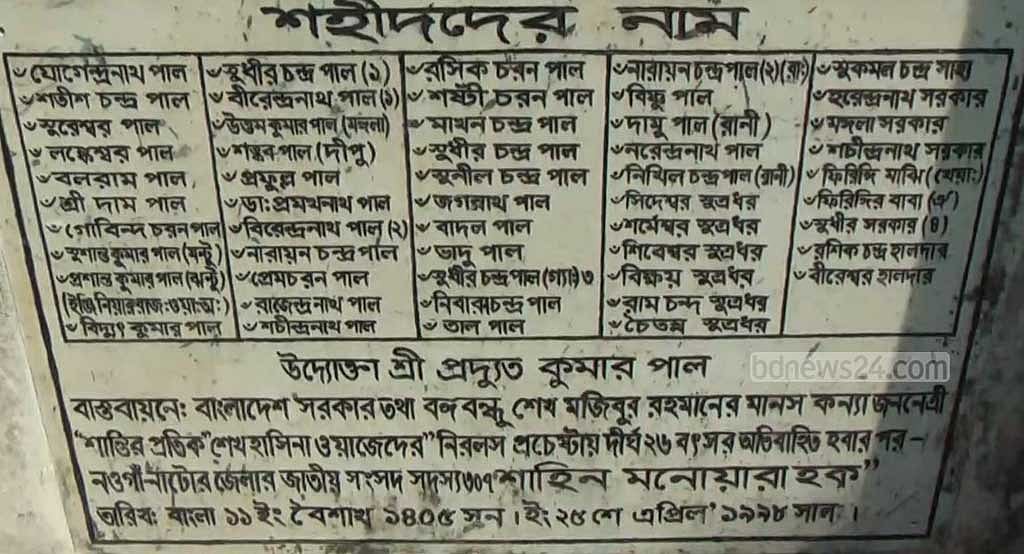 শহীদদের নাম
যোগেন্দ্রনাথ পাল
শতীশ চন্দ্র পাল
সুরেশ্বর পাল
লঙ্কেশ্বর পাল
বলরাম পাল
শ্রী দাম পাল
গোবিন্দ চরন পাল
সুশান্ত কুমার পাল (মন্টু)
প্রশান্ত কুমার পাল (ঝন্টু)
বিদ্যুৎ কুমার পাল
সুধীর চন্দ্র পাল (১)
বীরেন্দ্রনাথ পাল (১)
উত্তম কুমার পাল (মঙ্গলা)
শঙ্কর পাল (দীপু)
প্রফুল্ল পাল
ডাঃ প্রমথনাথ পাল
বিরেন্দ্রনাথ পাল (২)
নারায়ন চন্দ্র পাল
প্রেমচরন পাল
রাজেন্দ্রনাথ পাল
শচীন্দ্রনাথ পাল
রসিক চরন পাল
শষ্টী চরন পাল
মাখন চন্দ্র পাল
সুধীর চন্দ্র পাল
সুনীল চন্দ্র পাল
জগন্নাথ পাল
বাদল পাল
ভাদু পাল
সুধীর চন্দ্র পাল (গ্যাঃ) ৩
নিবারন চন্দ্র পাল
তাল পাল
নারায়ন চন্দ্র পাল (২) (রাঃ)
বিষ্ণু পাল
দামু পাল (রানী)
নরেন্দ্রনাথ পাল
নিখিল চন্দ্র পাল (রানী)
সিদেশ্বর সুত্রধর
শর্মেশ্বর সুত্রধর
শিবেশ্বর সুত্রধর
সুত্রধর
রাম চন্দ সুত্রধর
চৈতন্ন সুত্রধর
সুকমল চন্দ্র সাহা
হরেন্দ্রনাথ সরকার
মঙ্গলা সরকার
শচীন্দ্রনাথ সরকার
ফিরিঙ্গি মাঝি (খেয়াঃ)
ফিরিঙ্গির বাবা (ঐ)
সুধীর সরকার (৪)
রশিক চন্দ্র হালদার
বীরেশ্বর হালদার
উদ্যোক্তা শ্রী প্রদ্যুত কুমার পাল
bdnews24.com
বাস্তবায়নেঃ বাংলাদেশ সরকার তথা বঙ্গবন্ধু শেখ মজিবুর রহমানের মানস কন্যা জননেত্রী
"শান্তির প্রতিক" শেখ হাসিনা ওয়াজেদের" নিরলস প্রচেষ্টায় দীর্ঘ ২৬ বৎসর অতিবাহিত হবার পর –
নওগাঁ নাটোর জেলার জাতীয় সংসদ সদস্য ৩০৭ "শাহিন মনোয়ারা হক"
তারিখঃ বাংলা ১১ ইং বৈশাখ ১৪০৫ সন । ইং ২৫ শে এপ্রিল' ১৯৯৮ সাল ।